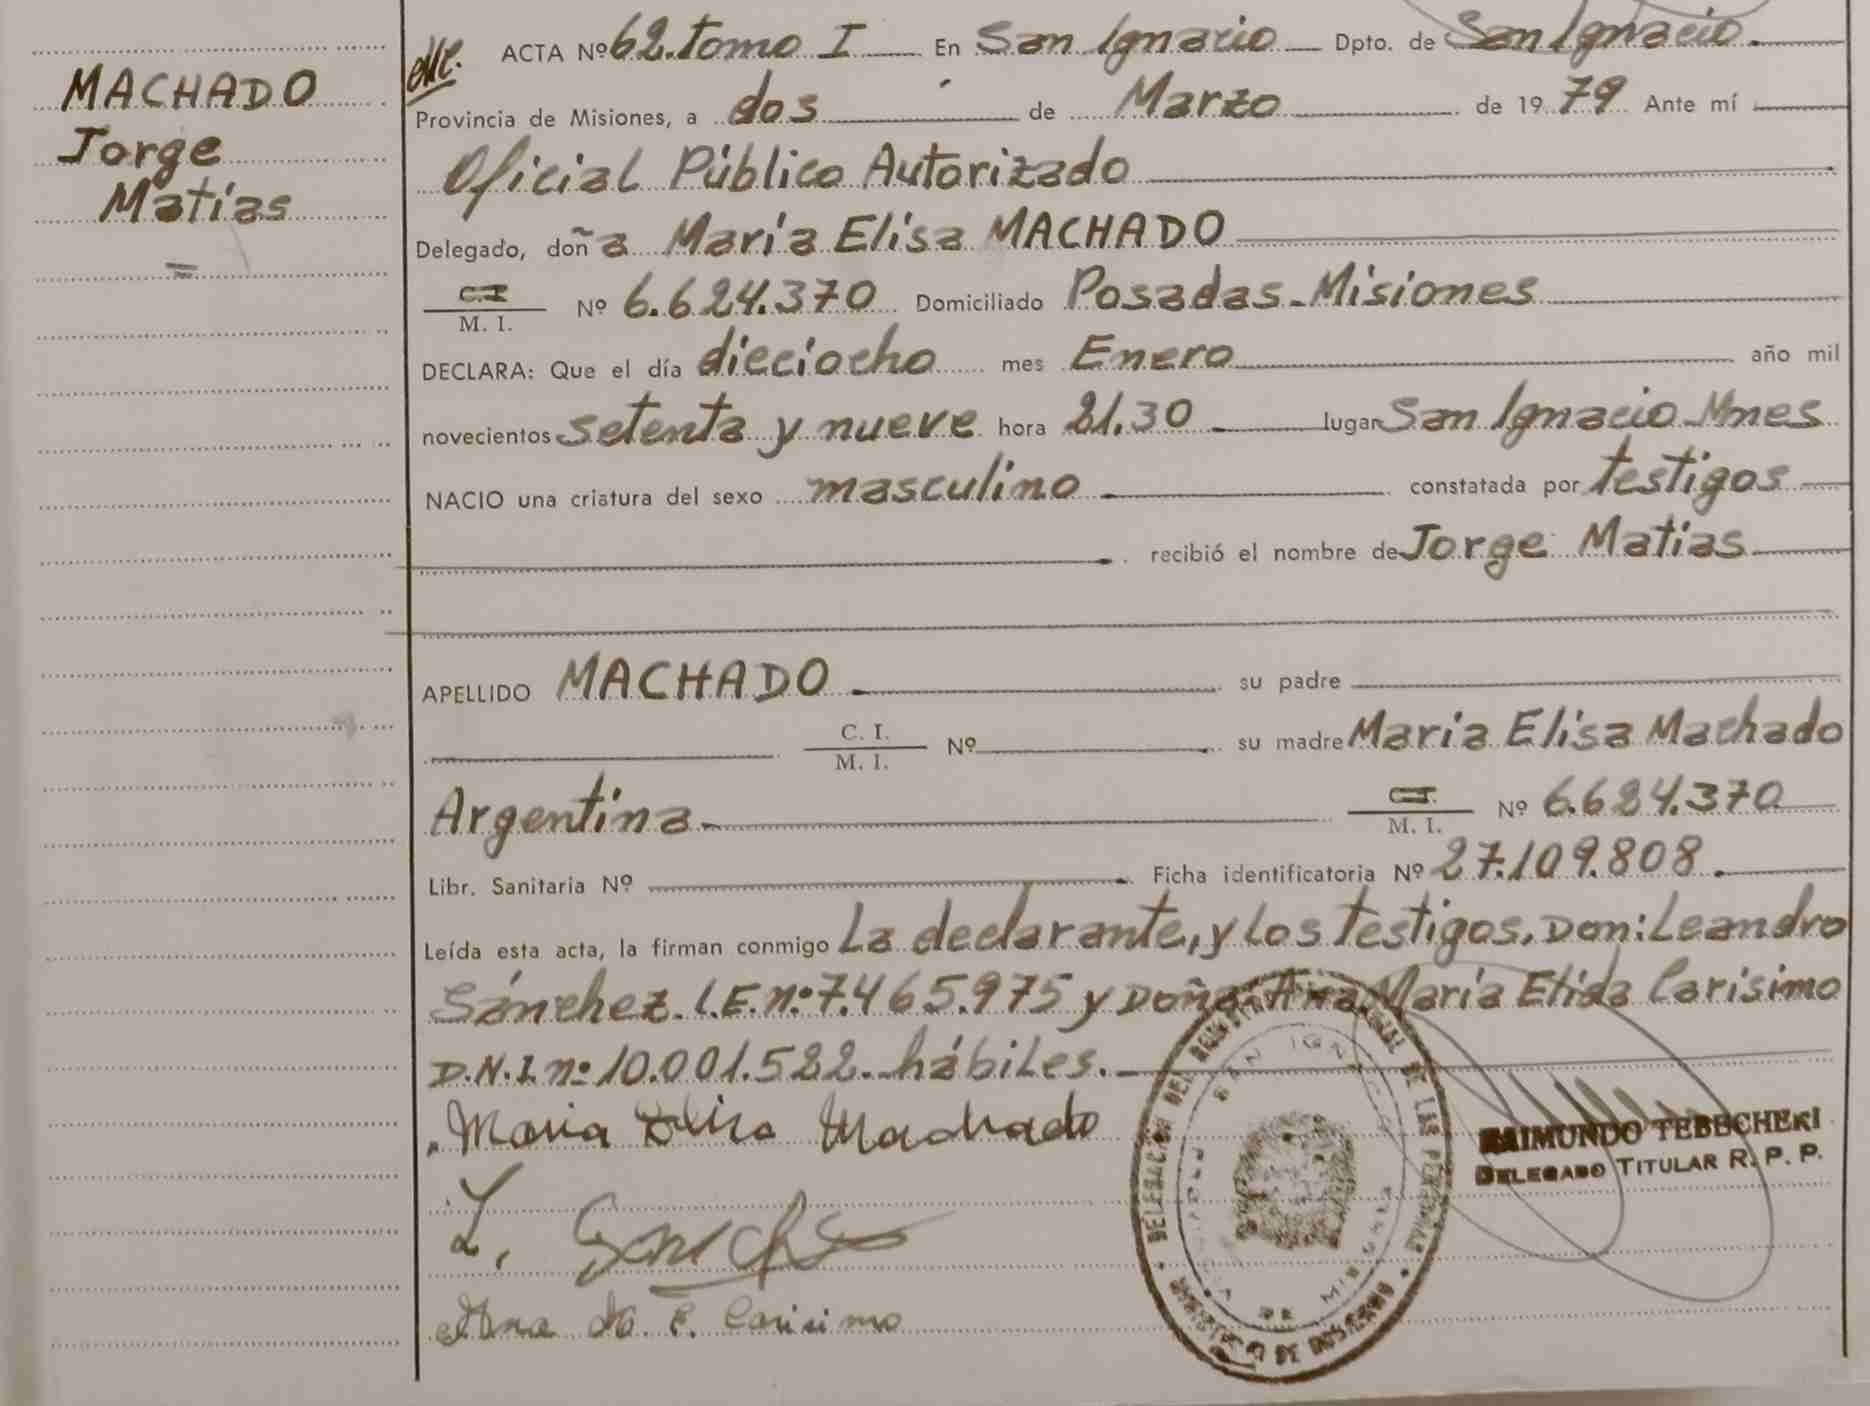 MACHADO
Jorge
Matías
=
ACTA Nº 62. tomo I En San Ignacio Dpto. de San Ignacio.
Provincia de Misiones, a dos de Marzo de 1979 Ante mí
Oficial Público Autorizado
Delegado, doña María Elisa MACHADO
C.I. / M. I. Nº 6.624.370 Domiciliado Posadas - Misiones
DECLARA: Que el día dieciocho mes Enero año mil
novecientos setenta y nueve hora 21.30 lugar San Ignacio - Mnes
NACIO una criatura del sexo masculino constatada por testigos
recibió el nombre de Jorge Matías
APELLIDO MACHADO su padre
C. I. / M. I. Nº su madre María Elisa Machado
Argentina C.I. / M. I. Nº 6.624.370
Libr. Sanitaria Nº Ficha identificatoria Nº 27.109.808.
Leída esta acta, la firman conmigo La declarante, y los testigos, Don: Leandro
Sánchez. L.E. nº 7.465.975 y Doña Ana María Elida Carísimo
D.N.I. nº 10.001.522. hábiles.
Maria Elisa Machado
L. Sanche
Ana Ma. E. Carisimo
RAIMUNDO TEBECHERI
DELEGADO TITULAR R. P. P.
DELEGACIÓN DEL REGISTRO PROVINCIAL DE LAS PERSONAS
SAN IGNACIO
PROVINCIA DE MISIONES